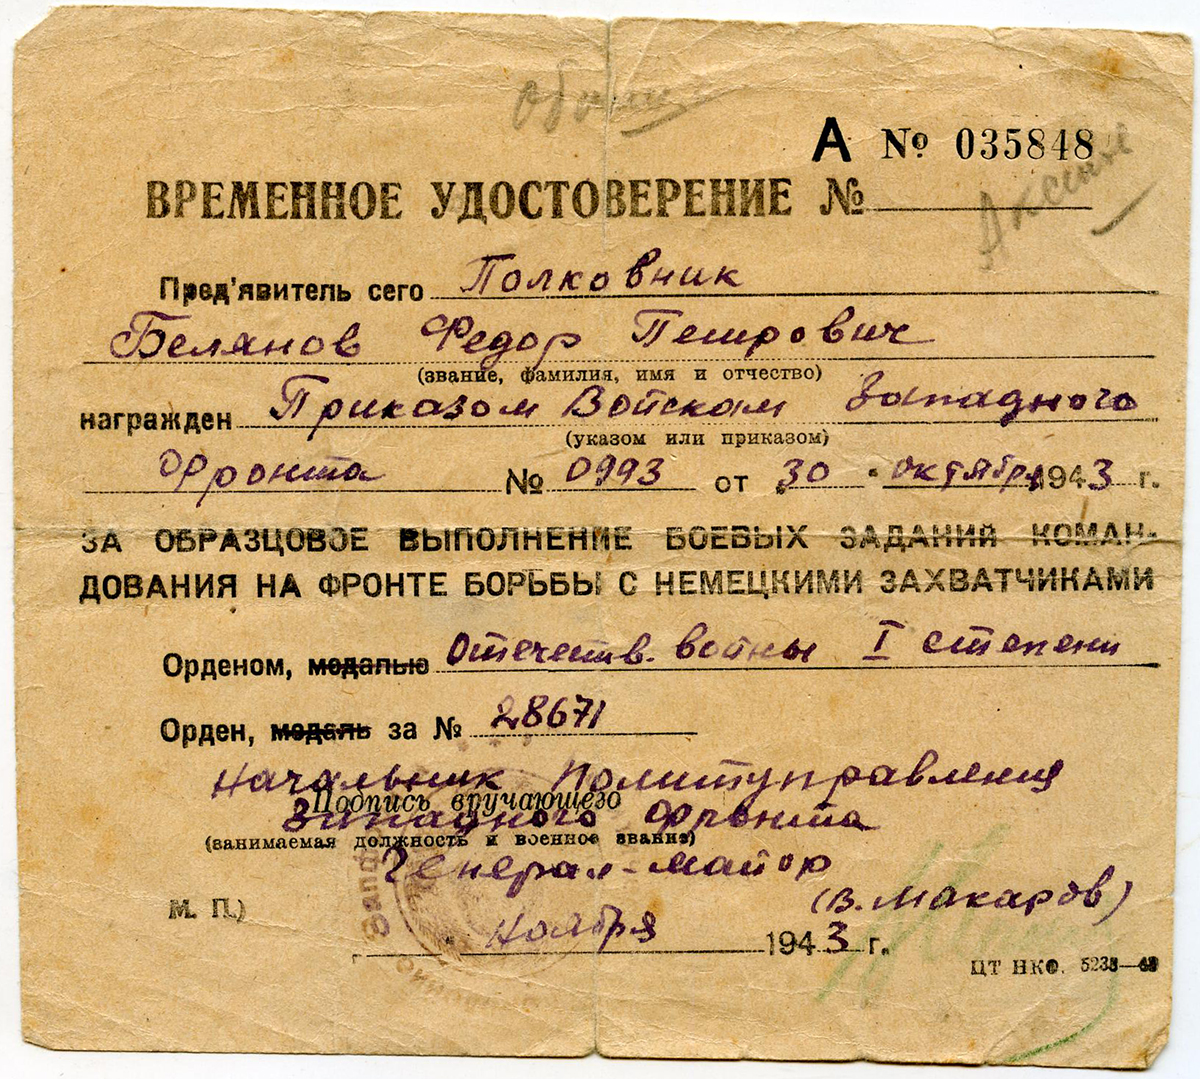 А № 035848
ВРЕМЕННОЕ УДОСТОВЕРЕНИЕ №
Пред'явитель сего Полковник
Белянов Федор Петрович
(звание, фамилия, имя и отчество)
награжден Приказом Войскам Западного
(указом или приказом)
Фронта № 0993 от „30" октября 1943 г.
ЗА ОБРАЗЦОВОЕ ВЫПОЛНЕНИЕ БОЕВЫХ ЗАДАНИЙ КОМАН-
ДОВАНИЯ НА ФРОНТЕ БОРЬБЫ С НЕМЕЦКИМИ ЗАХВАТЧИКАМИ
Орденом, медалью Отечеств. войны I степени
Орден, медаль за № 28671
Начальник Политуправления
Подпись вручающего
Западного Фронта
(занимаемая должность и военное звание)
Генерал-майор
(В. Макаров)
М. П.)
Ноября 1943 г.
ЦТ НКО. 5238—43